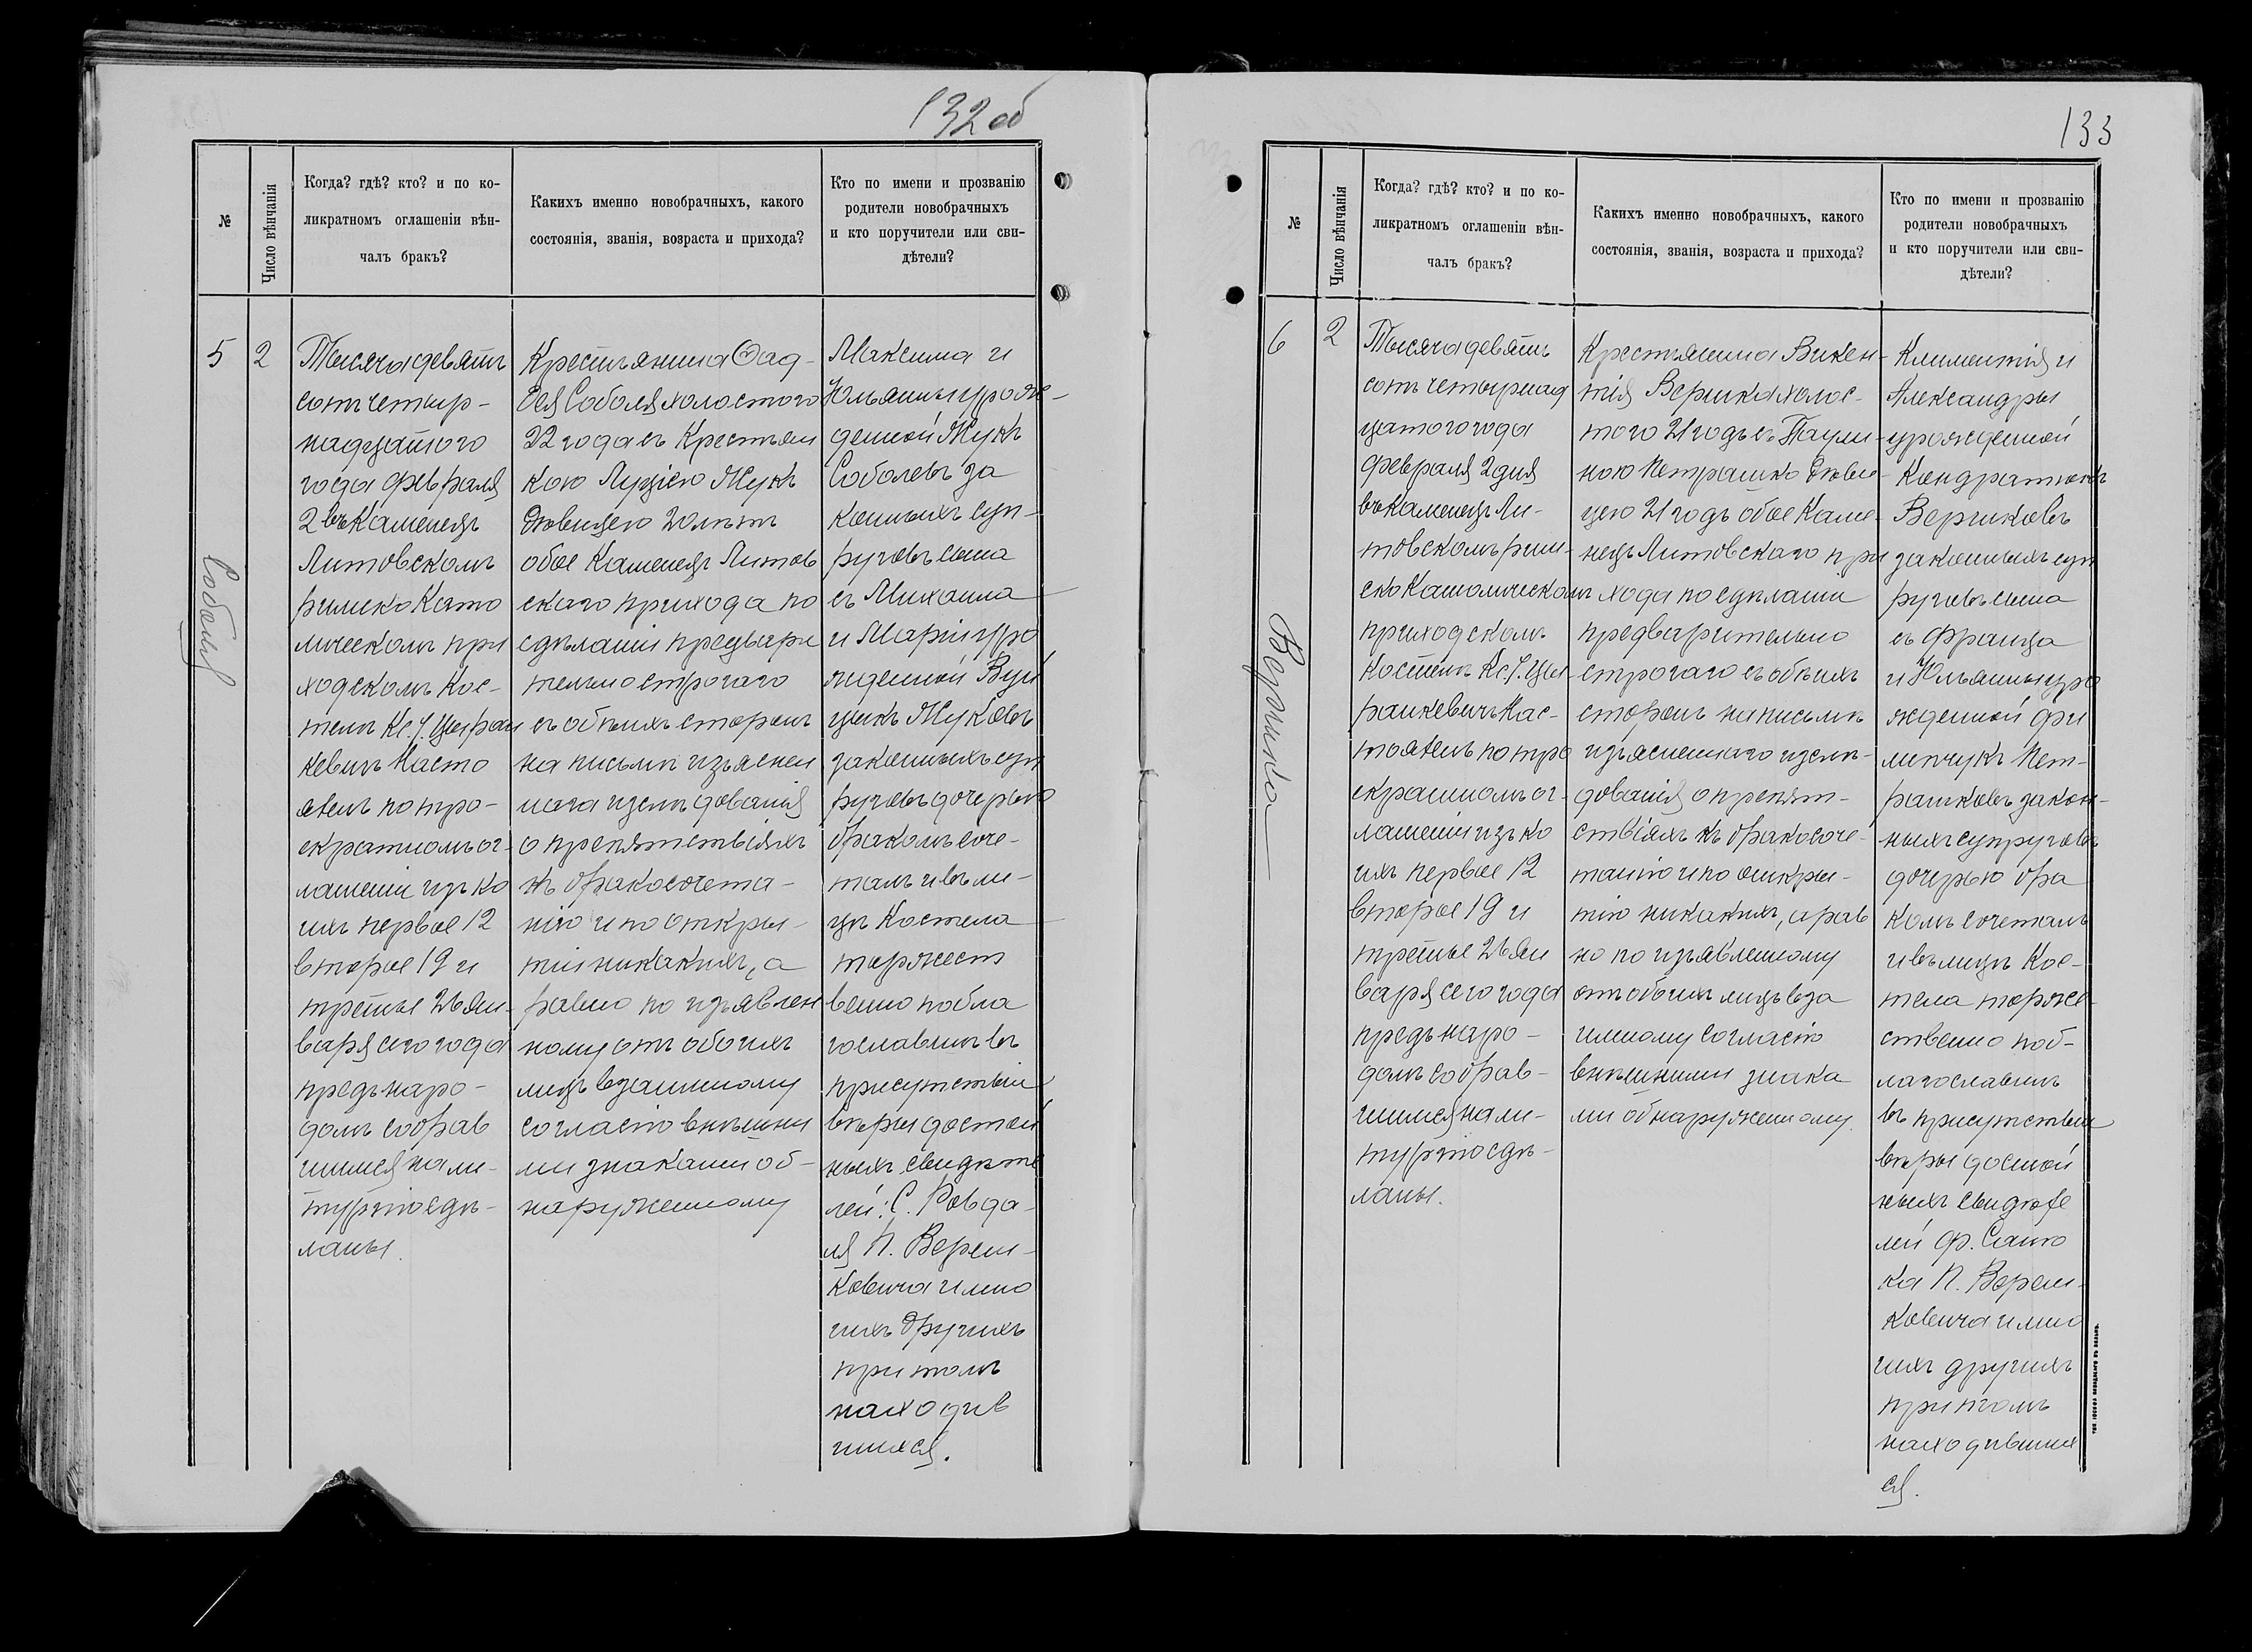 132об
№
Число вѣнчанія
Когда? гдѣ? кто? и по ко-
ликратномъ оглашеніи вѣн-
чалъ бракъ?
Какихъ именно новобрачныхъ, какого
состоянія, званія, возраста и прихода?
Кто по имени и прозванію
родители новобрачныхъ
и кто поручители или сви-
дѣтели?
5
Соболь
2
Тысяча девять
сотъ четыр-
надцатого
года февраля
2 въ Каменецъ
Литовскомъ
римско Като
лическомъ при
ходскомъ Кос-
телѣ Кс. I. Цыран
кевичъ Насто
ятель по тро-
екратномъ ог-
лашеніи изъ ко
ихъ первое 12
второе 19 и
третье 26 Ян-
варя сего года
предъ наро-
домъ собрав
шимся на ли-
тургію сдѣ-
ланы.
Крестьянина Ѳад-
дея Соболя холостого
22 года съ Крестьян
кою Луціею Жукъ
дѣвицею 20 лѣтъ
обое Каменецъ Литов
скаго прихода по
сдѣланіи предвари
тельно строгаго
съ обѣихъ сторонъ
на письмѣ изъяснен
наго изслѣдованія
о препятствіяхъ
къ бракосочета-
нію и по откры-
тіи никакихъ, а
равно по изъявлен
ному отъ обоихъ
лицъ взаимному
согласію внѣшни
ми знаками об-
наруженному
Максима и
Юльянны урож-
денной Жукъ
Соболевъ за
конныхъ суп-
руговъ сына
съ Михаила
и Маріи уро
жденной Вуй
цикъ Жуковъ
законныхъ суп
руговъ дочерью
бракомъ соче-
талъ и въ ли-
цѣ Костела
торжест
венно побла
гославилъ въ
присутствіи
вѣры достой
ныхъ свидѣте
лей: С. Ровда-
ля П. Верем-
ковича и мно
гихъ другихъ
при томъ
находив
шихся.
133
№
Число вѣнчанія
Когда? гдѣ? кто? и по ко-
ликратномъ оглашеніи вѣн-
чалъ бракъ?
Какихъ именно новобрачныхъ, какого
состоянія, званія, возраста и прихода?
Кто по имени и прозванію
родители новобрачныхъ
и кто поручители или сви-
дѣтели?
6
Вершко
2
Тысяча девять
сотъ четырнад
цатого года
февраля 2 дня
въ Каменецъ Ли-
товскомъ рим-
ско Католическомъ
приходскомъ
Костелѣ Кс. I. Цы-
ранкевичъ Нас-
тоятель по тро
екратномъ ог-
лашеніи изъ ко
ихъ первое 12
второе 19 и
третье 26 Ян
варя сего года
предъ наро-
домъ собрав-
шимся на ли-
тургію сдѣ-
ланы.
Крестьянина Викен-
тія Вершка холос-
того 21 годъ съ Паули-
ною Петрашко дѣви-
цею 21 годъ обое Каме-
нецъ Литовскаго при
хода по сдѣлани
предварительно
строгаго съ обѣихъ
сторонъ на письмѣ
изъясненнаго изслѣ-
дованія о препят-
ствіяхъ къ бракосоче-
танію и по откры-
тію никакихъ, а рав
но по изъявленному
отъ обоихъ лицъ вза
имному согласію
внѣшними знака
ми обнаруженному.
Климентія и
Александры
урожденной
Кондратюкъ
Вершковъ
законныхъ суп
руговъ сына
съ Франца
и Юльянны уро
жденной Фи
липчукъ Пет-
рашковъ закон-
ныхъ супруговъ
дочерью бра
комъ сочеталъ
и въ лицѣ Кос-
тела торже-
ственно поб-
лагославилъ
въ присутствіи
вѣры достой
ныхъ свидѣте
лей Ф. Саню
ка П. Верем-
ковича и мно
гихъ другихъ
при томъ
находивших
ся.